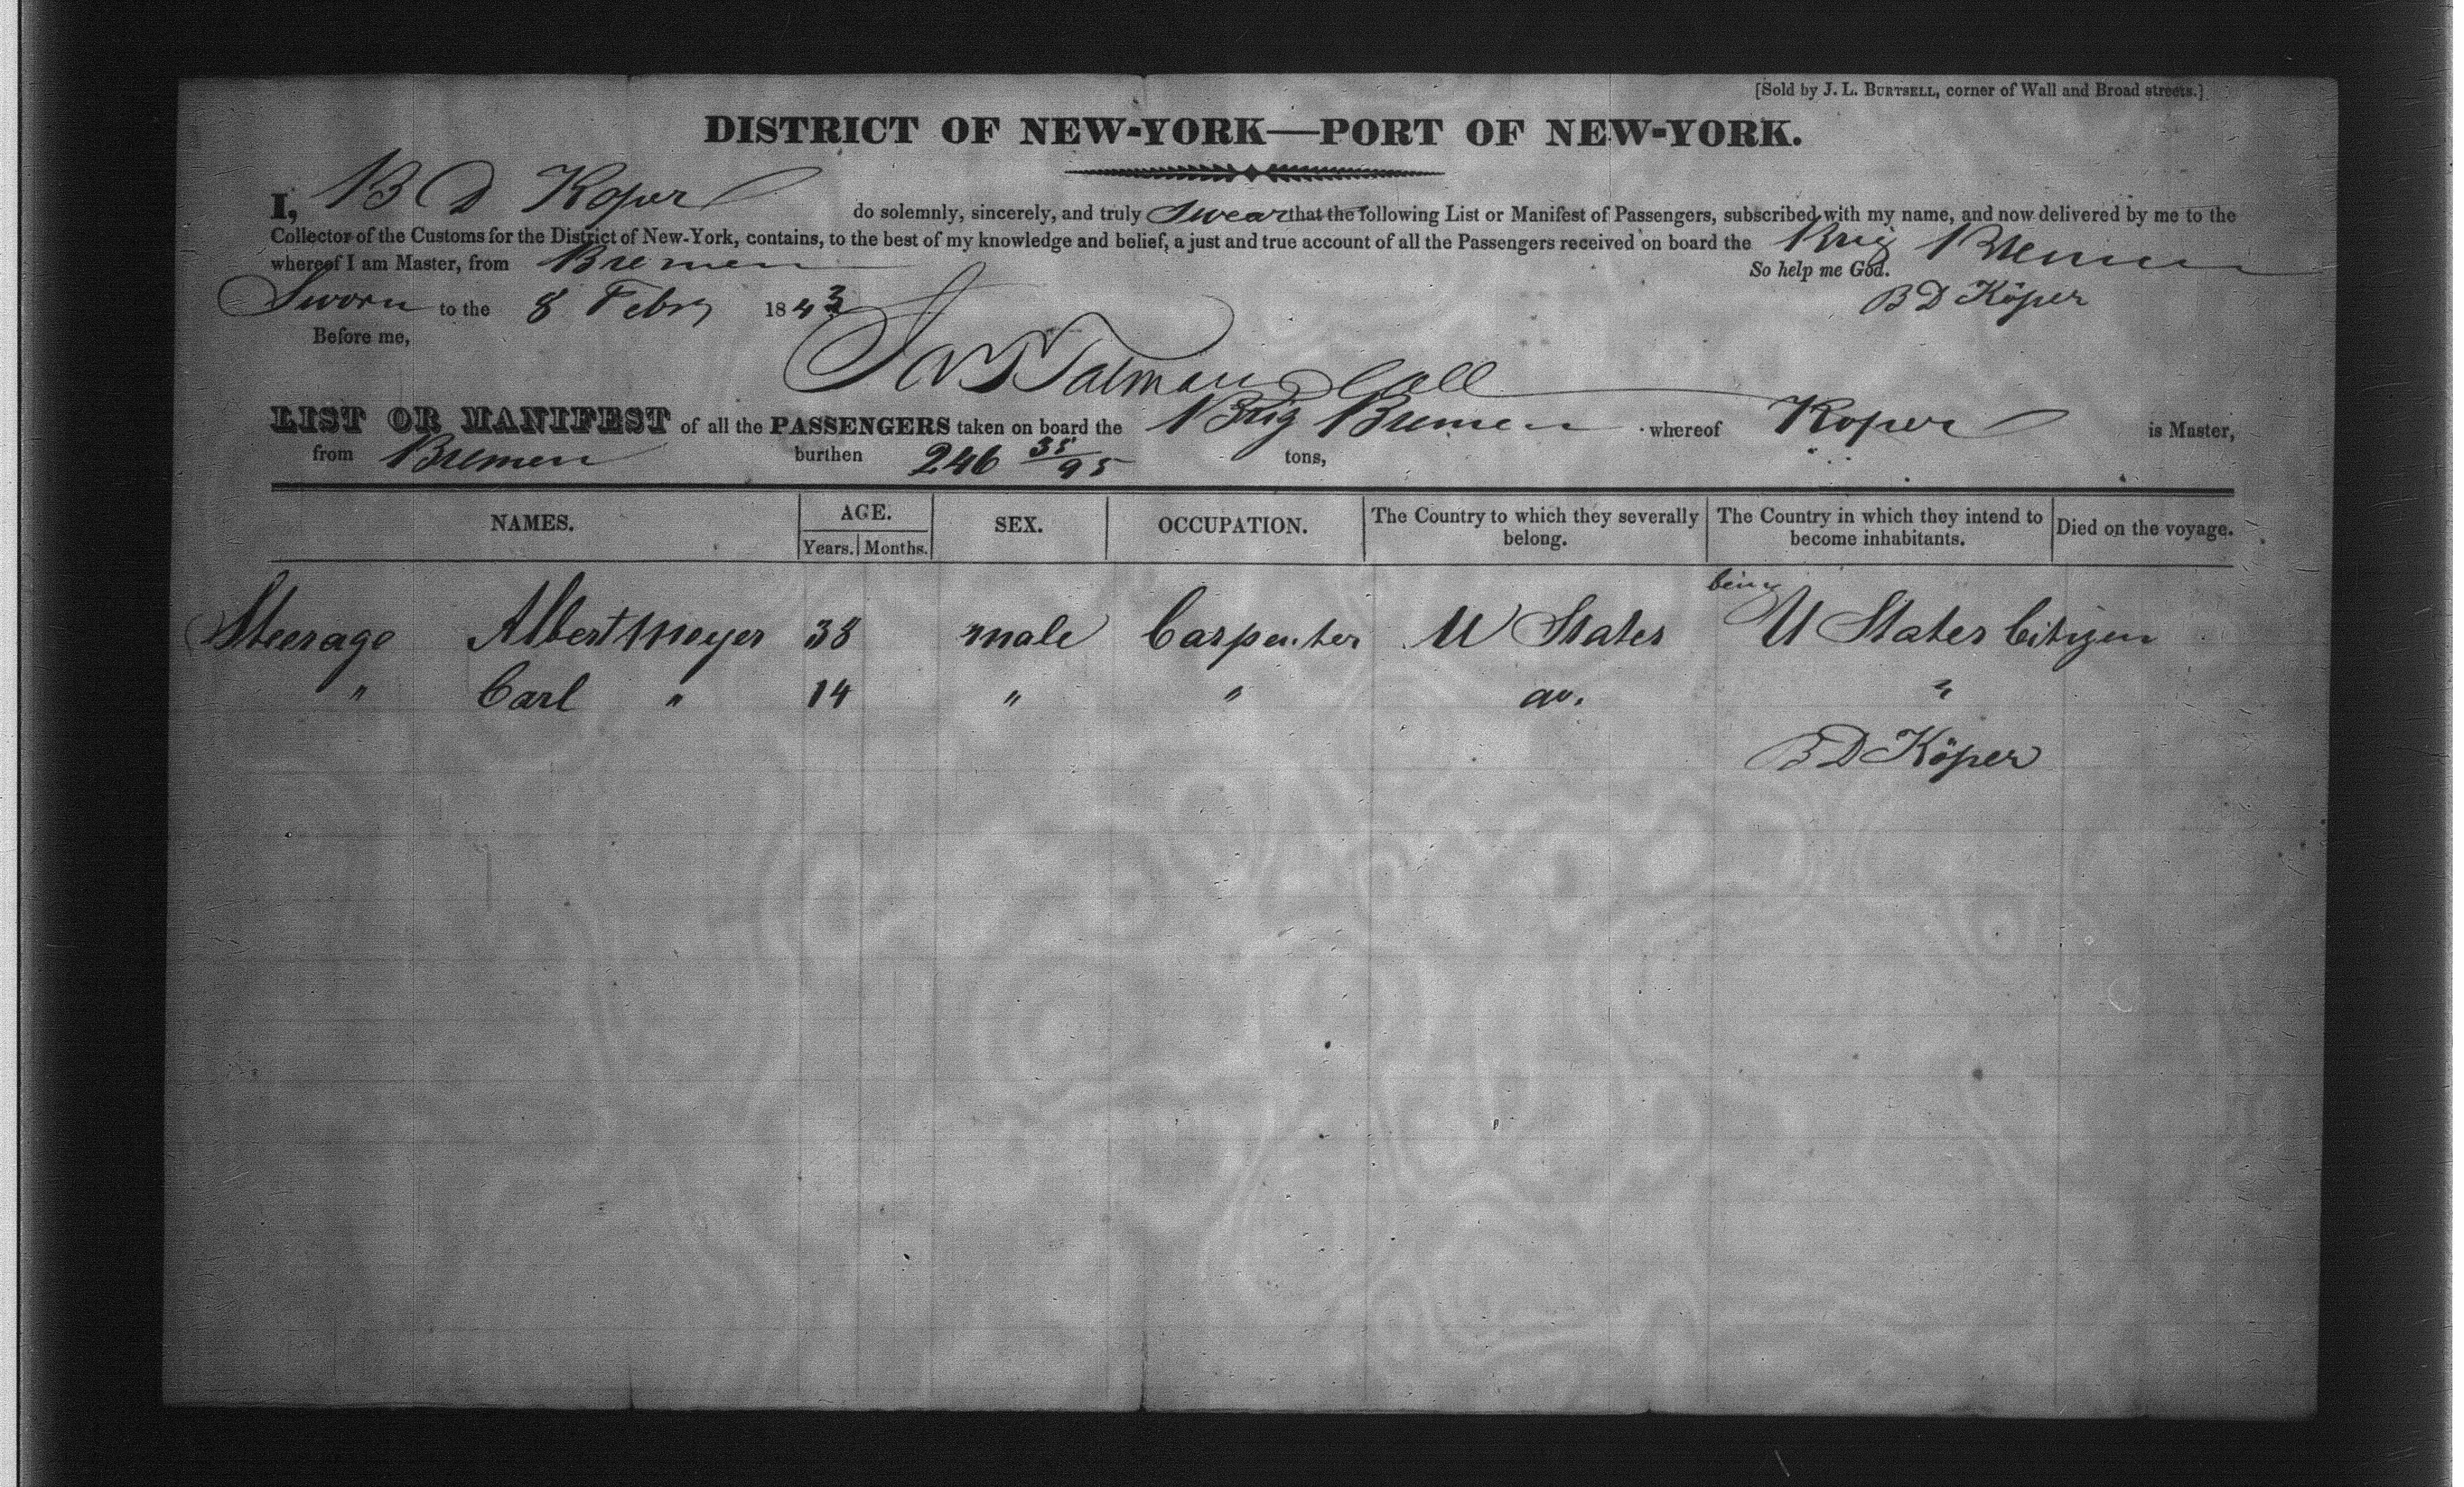 [Sold by J. L. BURTSELL, corner of Wall and Broad streets.]
DISTRICT OF NEW-YORK—PORT OF NEW-YORK.
I, B D Koper do solemnly, sincerely, and truly Swear that the following List or Manifest of Passengers, subscribed with my name, and now delivered by me to the
Collector of the Customs for the District of New-York, contains, to the best of my knowledge and belief, a just and true account of all the Passengers received on board the Brig Bremen
whereof I am Master, from Bremen So help me God.
Sworn to the 8 Febry 1843 B D Köper
Before me,
Talman Coll
LIST OR MANIFEST of all the PASSENGERS taken on board the Brig Bremen whereof Koper is Master,
from Bremen burthen 246 35/95 tons,
NAMES. AGE. Years. Months. SEX. OCCUPATION. The Country to which they severally belong. The Country in which they intend to become inhabitants. Died on the voyage.
being
Steerage Albert Meyer 38 male Carpenter U States U States Citizen
" Carl " 14 " " do. "
B D Köper